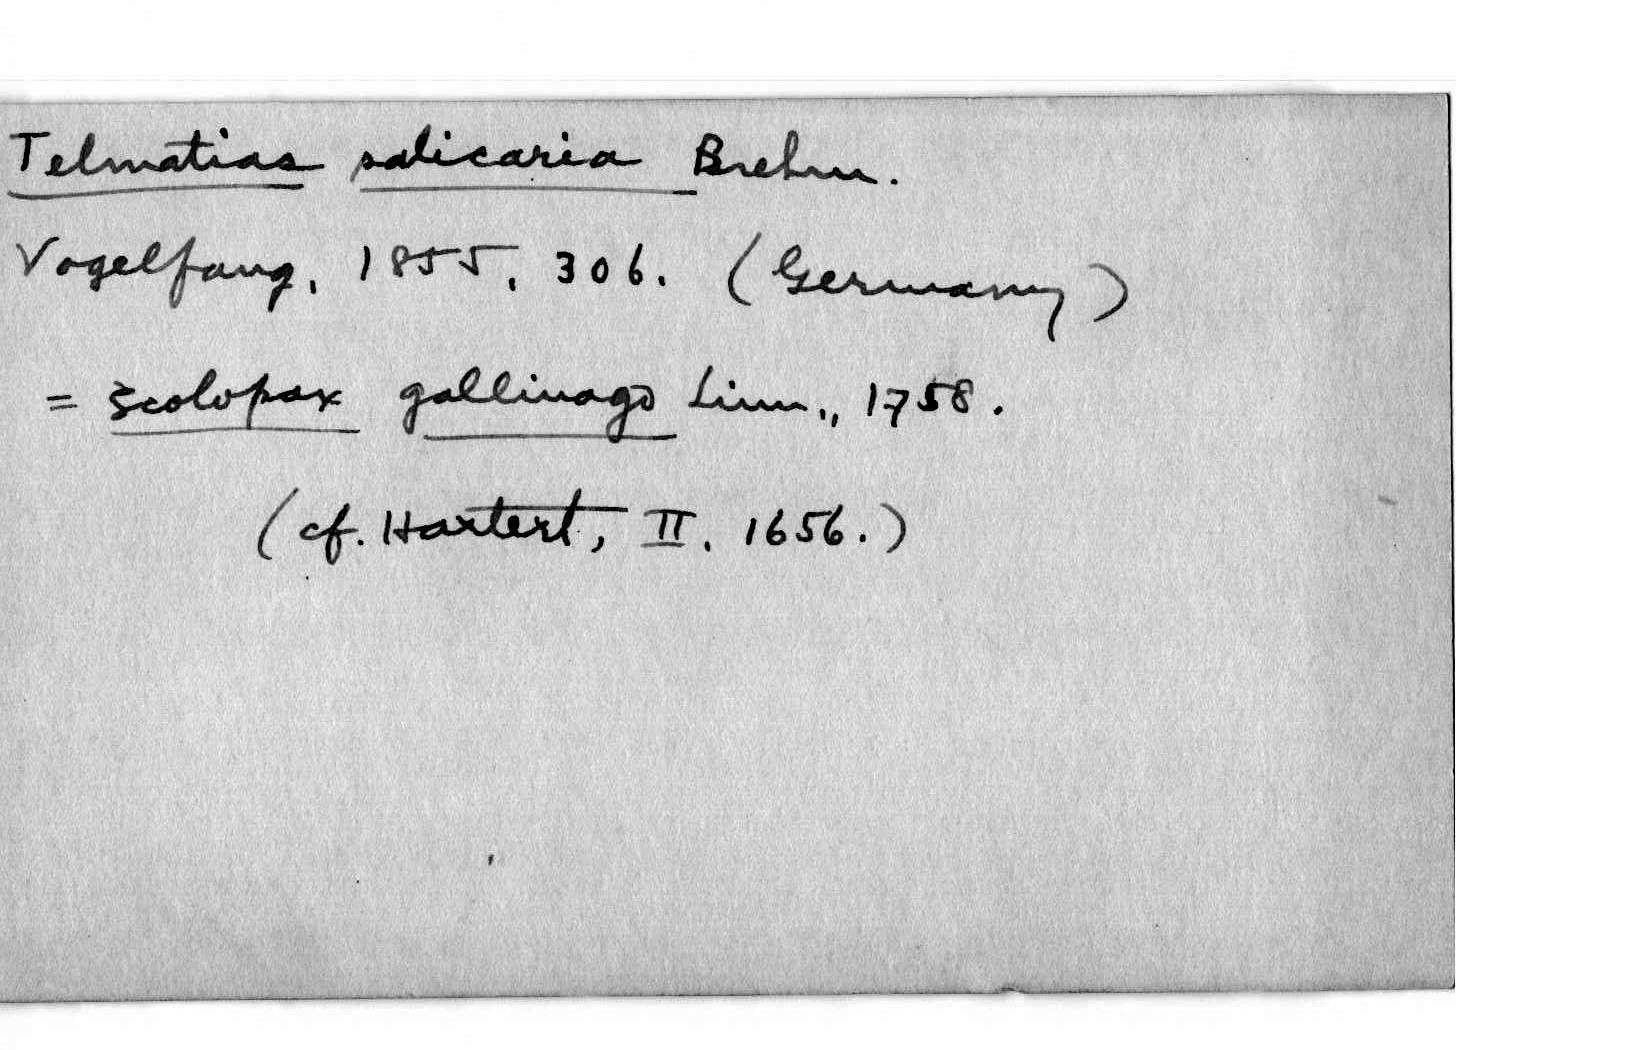 Telmatias salicaria Brehm.
Vogelfang, 1855, 306. (Germany)
= Scolopax gallinago Linn., 1758.
(cf. Hartert, II, 1656.)